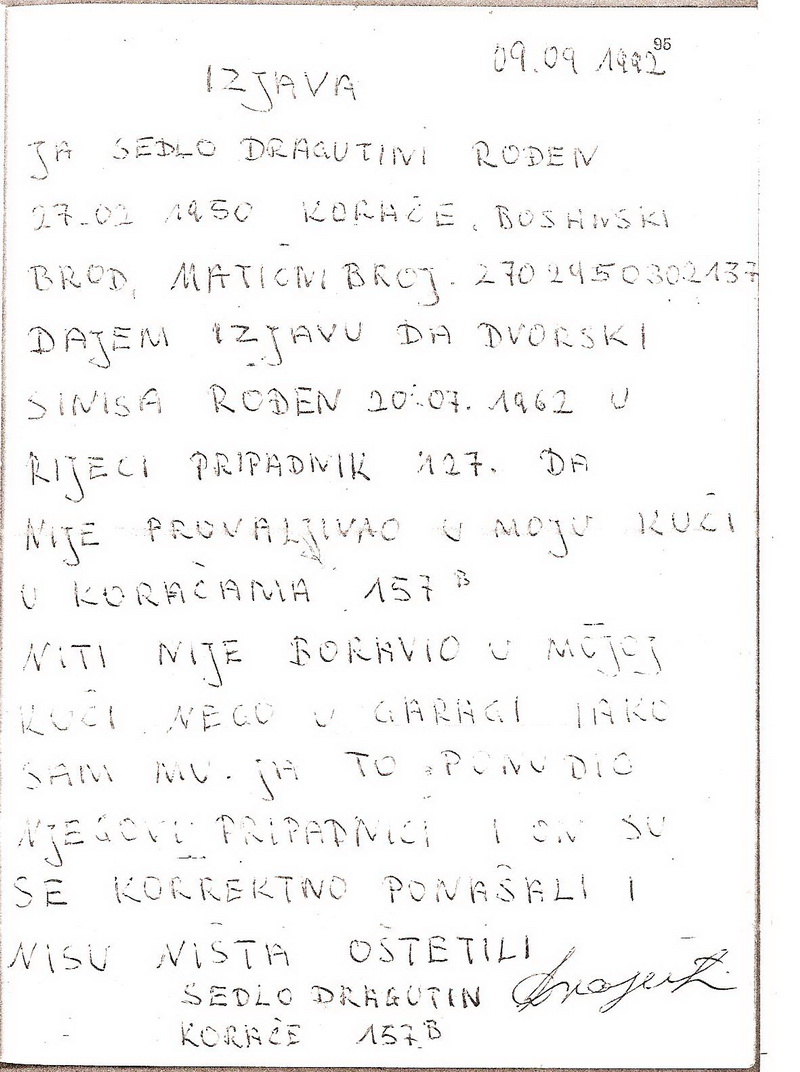 95
09.09 1992
IZJAVA
JA SEDLO DRAGUTINI ROĐEN
27.02 1950 KORAČE, BOSANSKI
BROD, MATIČNI BROJ. 2702950302137
DAJEM IZJAVU DA DVORSKI
SINISA ROĐEN 20.07. 1962 U
RIJECI PRIPADNIK 127. DA
NIJE PROVALJIVAO U MOJU KUĆI
U KORAČAMA 157 B
NITI NIJE BORAVIO U MOJOJ
KUĆI NEGO U GARAGI IAKO
SAM MU JA TO PONUDIO
NJEGOVI PRIPADNICI I ON SU
SE KORREKTNO PONAŠALI I
NISU NIŠTA OŠTETILI
SEDLO DRAGUTIN
KORAČE 157 B